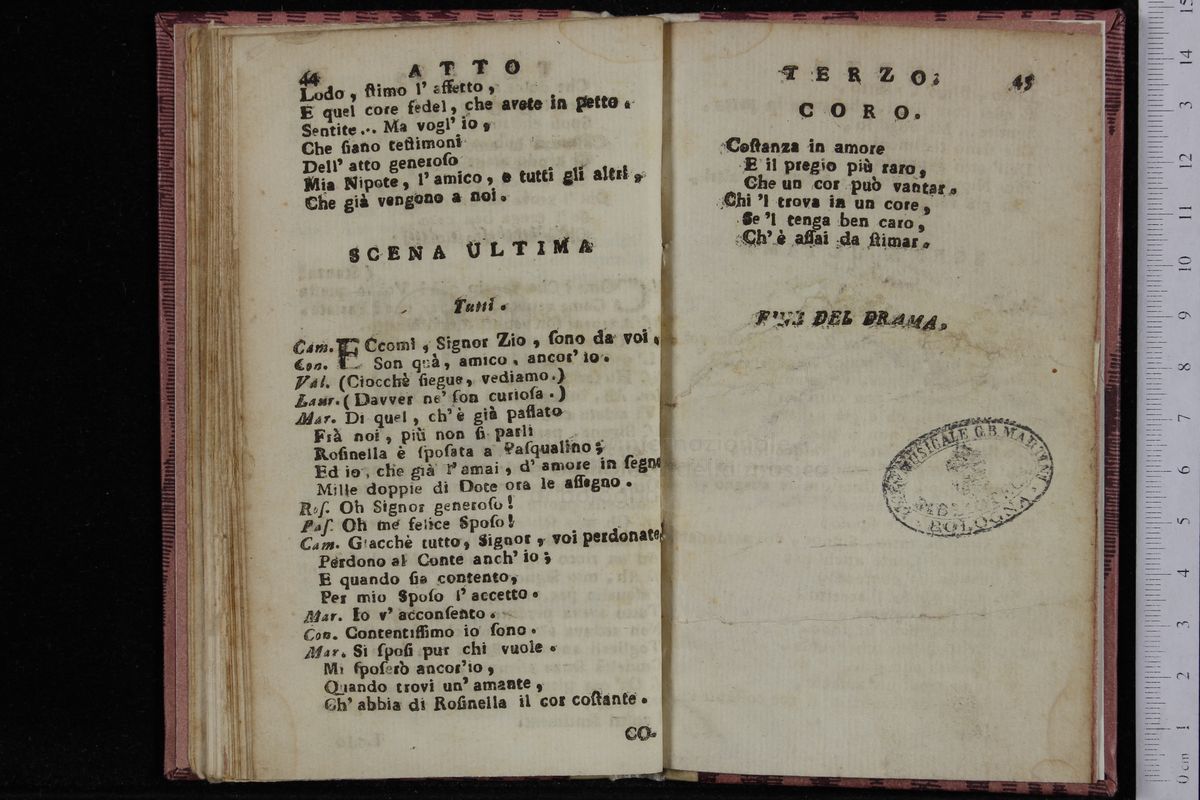 44 ATTO
Lodo, ſtimo l' affetto,
E quel core fedel, che avete in petto.
Sentite... Ma vogl' io,
Che ſiano teſtimoni
Dell' atto generoſo
Mia Nipote, l' amico, e tutti gli altri,
Che già vengono a noi.
SCENA ULTIMA
Tutti.
Cam. ECcomi, Signor Zio, ſono da voi.
Con. Son quà, amico, ancor' io.
Val. (Ciocchè ſiegue, vediamo.)
Laur. (Davver ne' ſon curioſa.)
Mar. Di quel, ch' è già paſſato
Frà noi, più non ſi parli
Roſinella è ſpoſata a Paſqualino;
Ed io, che già l' amai, d' amore in ſegno
Mille doppie di Dote ora le aſſegno.
Roſ. Oh Signor generoſo!
Paſ. Oh me felice Spoſo!
Cam. Giacchè tutto, Signor, voi perdonate,
Perdono al Conte anch' io;
E quando ſia contento,
Per mio Spoſo l' accetto.
Mar. Io v' acconſento.
Con. Contentiſſimo io ſono.
Mar. Si ſpoſi pur chi vuole.
Mi ſpoſerò ancor' io,
Quando trovi un' amante,
Ch' abbia di Roſinella il cor coſtante.
CO-
TERZO. 45
CORO.
Coſtanza in amore
E il pregio più raro,
Che un cor può vantar.
Chi 'l trova in un core,
Se 'l tenga ben caro,
Ch' è aſſai da ſtimar.
FINE DEL DRAMA.
MUSICALE G.B. MARTINI
BOLOGNA
0 cm 1 2 3 4 5 6 7 8 9 10 11 12 13 14 15